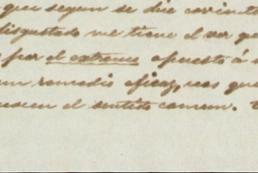 que segun se dice
disgustado me tiene el ver que
por el extremo opuesto á
un remedio eficaz, mas que
el sentido comun.